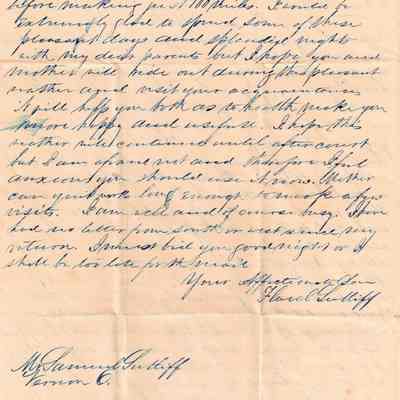 before making just 100 miles. I would be
extremely glad to spend some of these
pleasant days and splendid nights
with my dear parents but I hope you and
mother will ride out during this pleasant
weather and visit your acquaintances
It will help you both as to health make you
more happy and useful. I hope this
weather will continue until after court
but I am afraid not and therefore I feel
anxious you should use it now. Mother
can quit work long enough to make a few
visits. I am well and of course busy. I have
had no letter from south or west since my
return. I must bid you good night or I
shall be too late for the mail
Your Affectionate Son
Flavel Sutliff
Mr Samuel Sutliff
Vernon O.